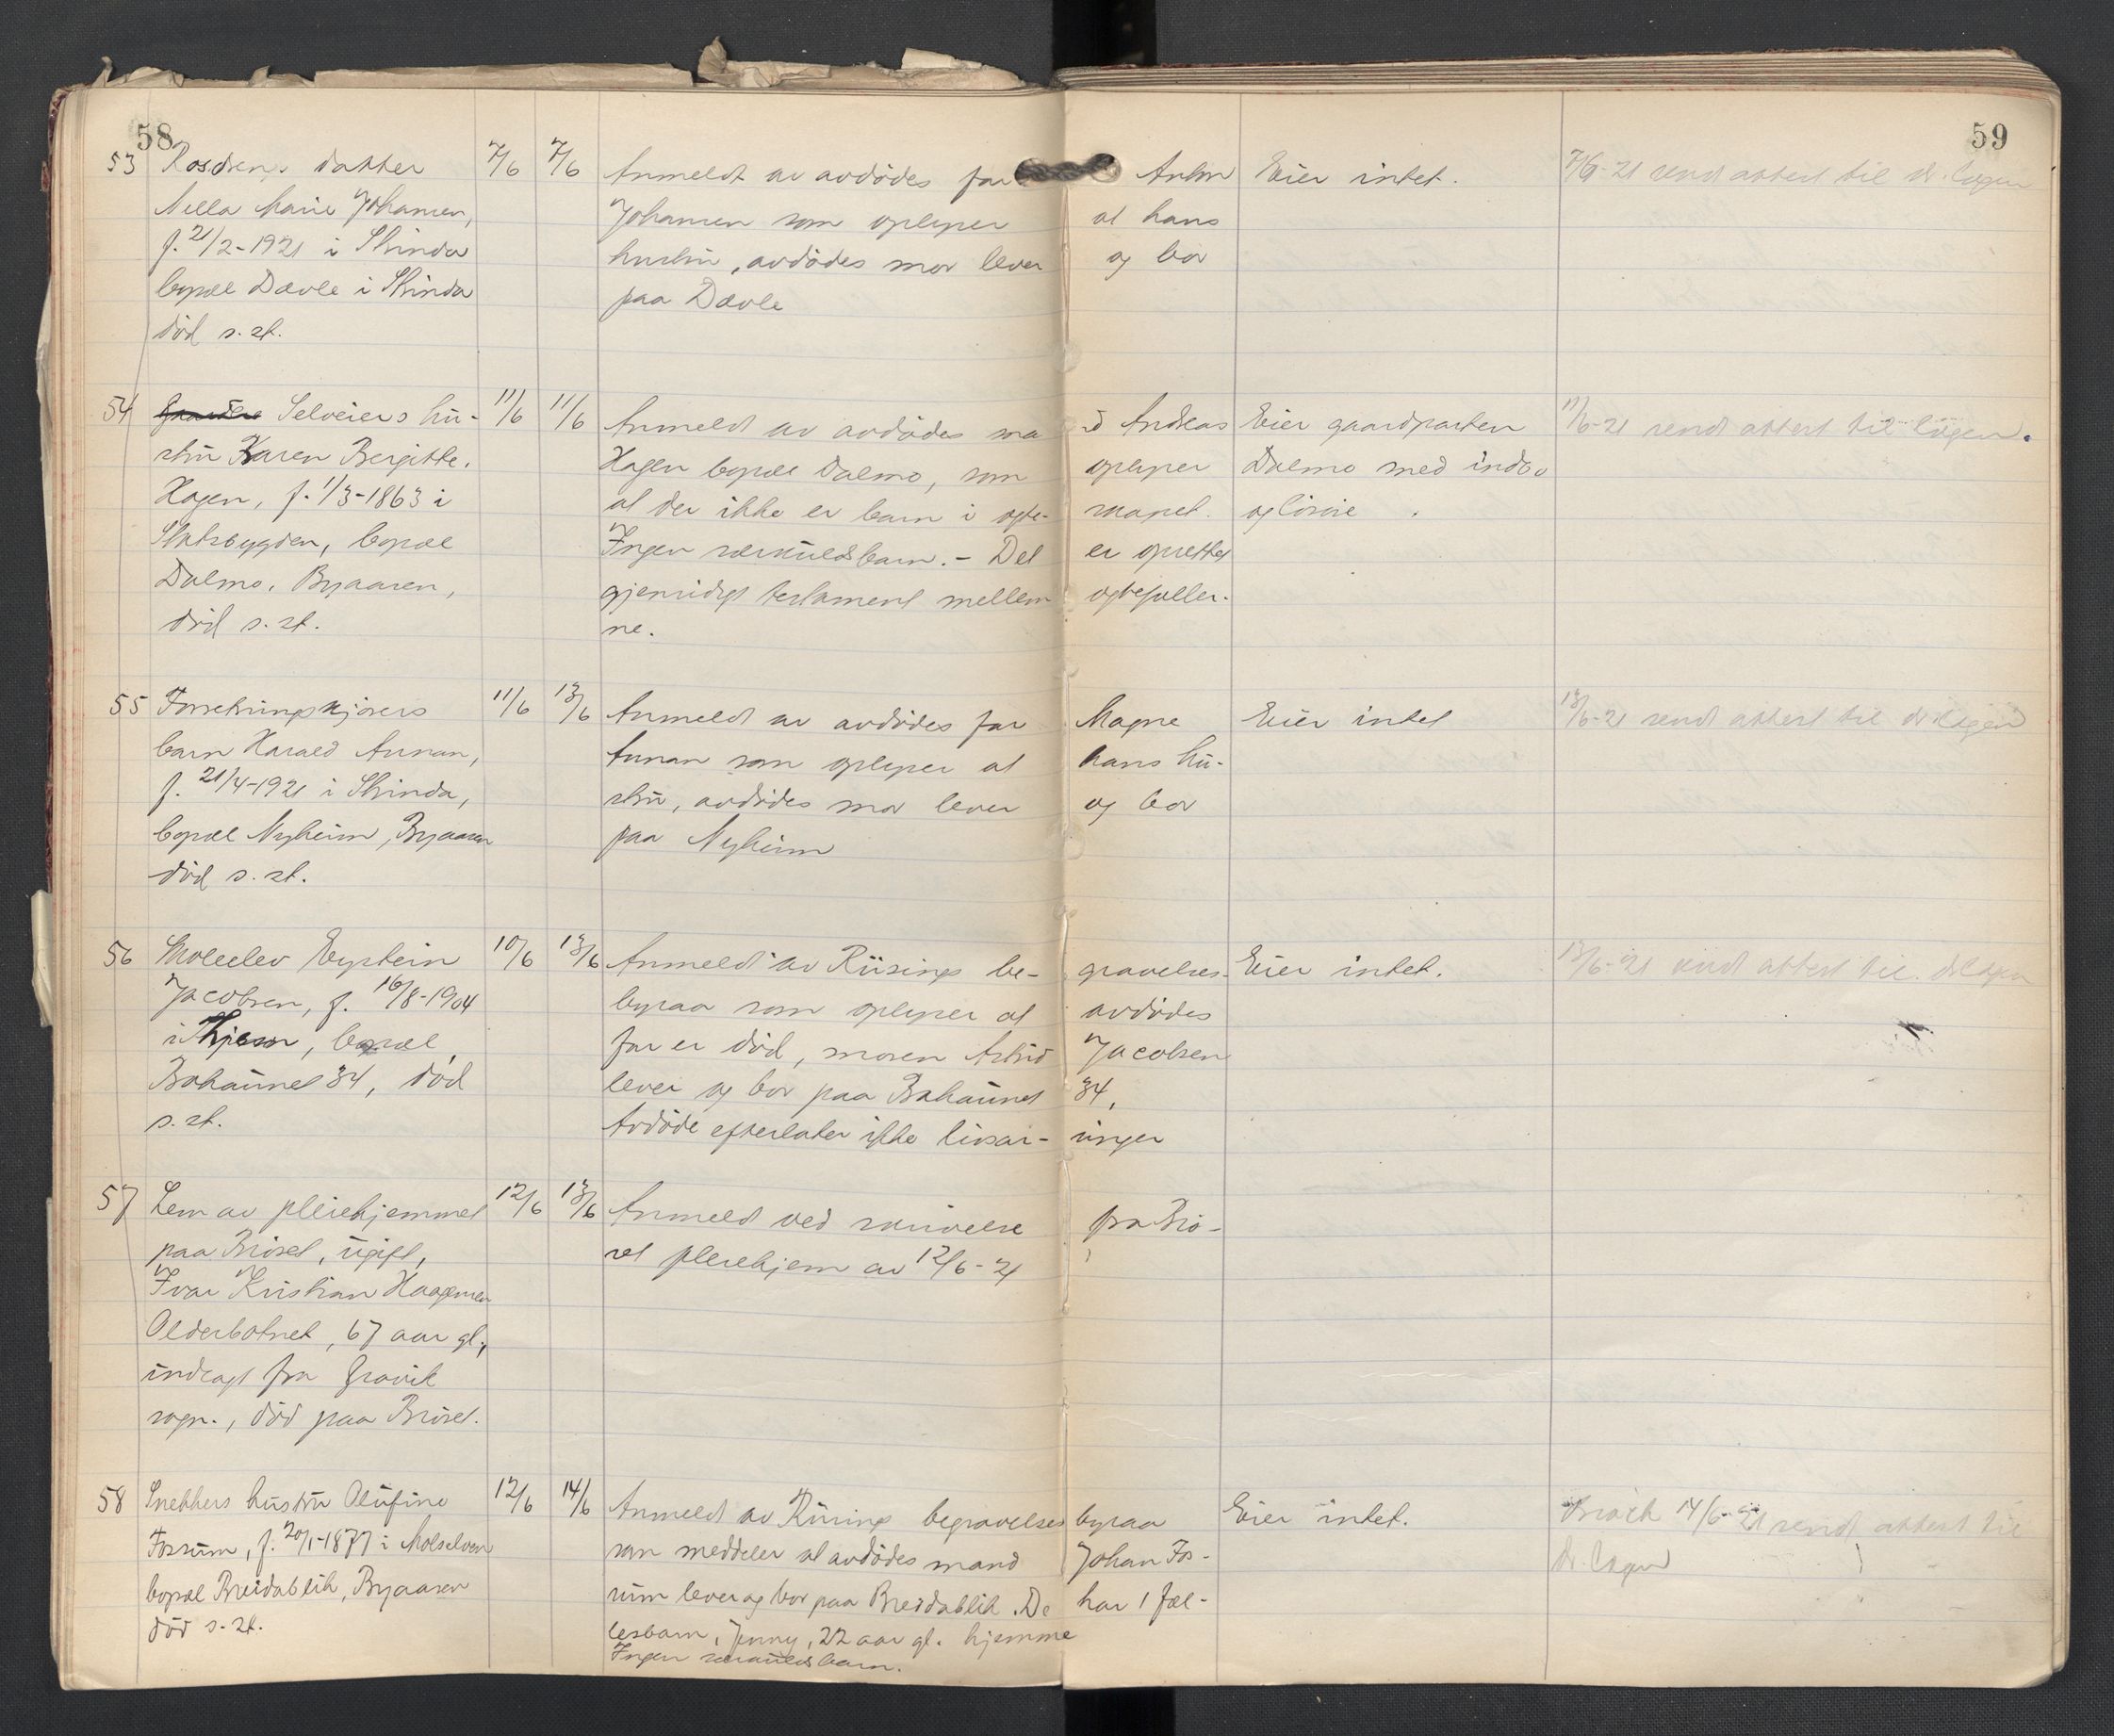 58
59
53 datter 7/6 7/6 Anmeldt av avdødes far Anton Eier intet. 7/6-21 sendt attest til dr. Løgen
Nella Marie Johansen, Johansen som oplyser at hans
f. 21/2-1921 i Strinda hustru, avdødes mor lever og bor
bopæl Dævle i Strinda paa Dævle
død s. st.
54 Selveiers hu- 11/6 11/6 Anmeldt av avdødes ma nd Andreas Eier gaardparten 11/6-21 sendt attest til Løgen.
stru Karen Bergitte. Hagen bopæl Dalmo, som oplyser Dalmo med indbo
Hagen, f. 1/3-1863 i at der ikke er barn i egte- skapet. og løsøre.
Stadsbygden, bopæl Ingen særkuldsbarn. - Det er oprettet
Dalmo, Byaasen, gjensidigt testament mellem egtefeller-
død s. st. ne.
55 Forretningskjørers 11/6 13/6 Anmeldt av avdødes far Magne Eier intet 13/6-21 sendt attest til dr Løgen
barn Harald Aunan, Aunan som oplyser at hans hu-
f. 21/4-1921 i Strinda, stru, avdødes mor lever og bor
bopæl Nyheim, Byaasen paa Nyheim
død s. st.
56 Moleelev Eystein 10/6 13/6 Anmeldt av Riisings be- gravelses- Eier intet. 13/6-21 sendt attest til dr Løgen
Jacobsen, f. 16/8-1904 byraa som oplyser at avdødes
i bopæl far er død, moren Astrid Jacobsen
Bakaunet 34, død lever og bor paa Bakaunet 34,
s. st. Avdøde efterlater ikke livsar- vinger
57 Lem av pleiehjemmet 12/6 13/6 Anmeldt ved skrivelse fra Brø-
paa Brøset, ugift, set pleiehjem av 12/6-21
Ivar Kristian Haagensen
Olderbotnet, 67 aar gl.,
indlagt fra
sogn., død paa Brøset.
58 Snekkers hustru Olufine 12/6 14/6 Anmeldt av Riisings begravelses byraa Eier intet. 14/6-21 sendt attest til
Fossum, f. 20/1-1877 i Molselven som meddeler at avdødes mand Johan Fos- dr. Løgen
bopæl Breidablik, Byaasen sum lever og bor paa Breidablik. De har 1 fæl-
død s. st. lesbarn, Jenny, 22 aar gl. hjemme
Ingen særkuldsbarn.